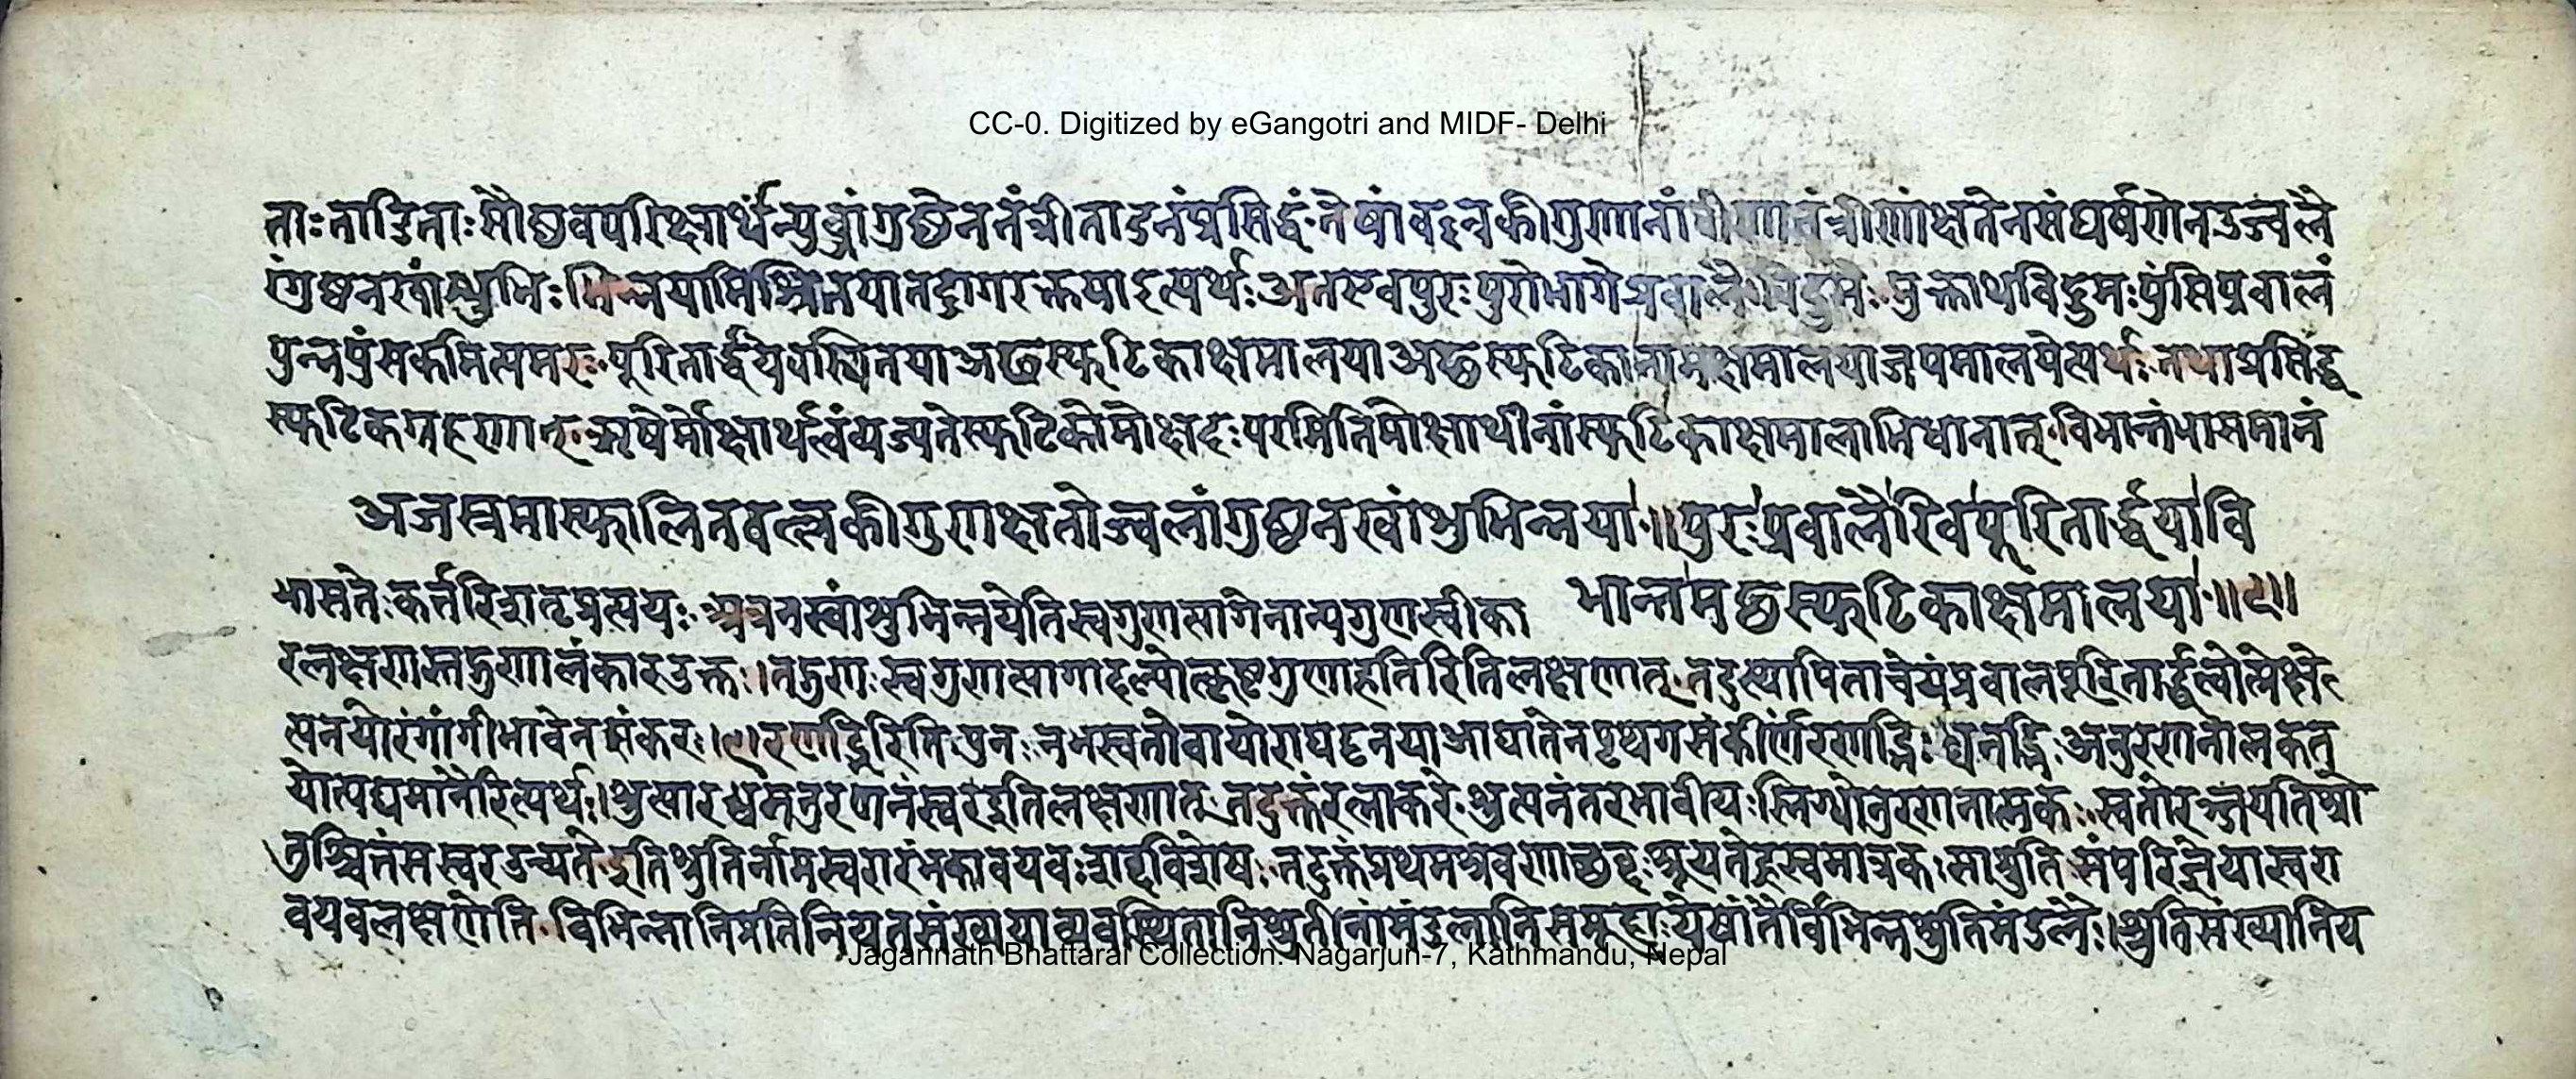 CC-0. Digitized by eGangotri and MIDF- Delhi
ताः ताडिताः सौष्ठवपरिक्षार्थं न्युब्जांगुष्ठेन तंत्रीताडनं प्रसिद्धं तेषां वल्लकीगुणानां वीणातंत्रीणां क्षतेन संघर्षणेन उज्वलै
रंगुष्ठनखांशुभिः भिन्नया मिश्रितया तद्रागरक्तया इत्यर्थः अतएव पुरः पुरोभागे प्रवालैः विद्रुमैः मुक्ताथ विद्रुमः पुंसि प्रवालं
पुन्नपुंसकमित्यमरः पूरितार्द्धया अछस्फटिकाक्षमालया अछस्फटिकानामक्षमालया जपमालयेत्यर्थः तथा
स्फटिकग्रहणात् ऋषेर्मोक्षार्थत्वं व्यज्यते स्फटिको मोक्षदः परमिति मोक्षार्थीनां स्फटिकाक्षमालाभिधानात् विभान्तं भासमानं
अजस्रमास्फालितवल्लकीगुणक्षतोज्वलांगुष्ठनखांशुभिन्नया ॥ पुरः प्रवालैरिव पूरितार्द्धया वि
भान्तमछस्फटिकाक्षमालया ॥९॥
भासतेः कर्त्तरि शतृप्रत्ययः अत्र नखांशुभिन्नयेति स्वगुणत्यागेनान्यगुणस्वीका
रलक्षणस्तद्गुणालंकार उक्तः । तद्गुणः स्वगुणत्यागादन्योत्कृष्टगुणाहृतिरिति लक्षणात् तदुत्थापिता चेयं प्रवालपूरितार्द्धत्वोत्प्रेक्षे
त्यनयोरंगांगीभावेन संकरः ।९। रणद्भिरिति पुनः नभस्वतो वायोराघट्टनया आघातेन पृथगसंकीर्णं रणद्भिः ध्वनद्भिः अनुरणनो
योत्पद्यमानैरित्यर्थः । श्रुत्यारब्धमनुरणनं स्वर इति लक्षणात् तदुक्तं रत्नाकरे श्रुत्यनंतरभावी यः स्निग्धोनुरणनात्मकः स्वतो रञ्जयति श्रो
तुश्चित्तं स स्वर उच्यते इति श्रुतिर्नाम स्वरारंभकावयवः शब्दविशेषः तदुक्तं प्रथमश्रवणाछब्दः श्रूयते ह्रस्वमात्रकः सा श्रुतिः संपरिज्ञेया स्वरा
वयवलक्षणेति विभिन्नानि प्रतिनियतसंख्यया व्यवस्थितानि श्रुतीनां मंडलानि समूहाः येषां तैर्विभिन्नश्रुतिमंडलैः । श्रुतिसंख्यानिय
Jagannath Bhattarai Collection. Nagarjun-7, Kathmandu, Nepal